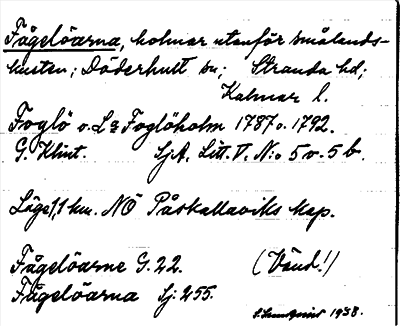 Fågelöarna, holmar utanför smålands-
kusten; Döderhult sn; Stranda hd;
Kalmar l.
Foglö o. La Foglöholm 1787 o. 1792.
G. Klint. SjA. Litt. V. N:o 5 o. 5 b.
Läge 1,1 km. NÖ Påskallaviks kap.
Fågelöarne G. 22. (Vänd!)
Fågelöarna Sj: 255.
1938.